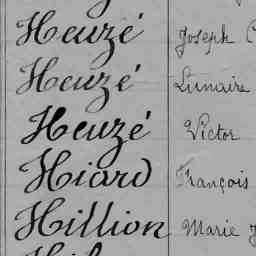 Heuzé Joseph
Heuzé Lunaire
Heuzé Victor
Hiard François
Hillion Marie